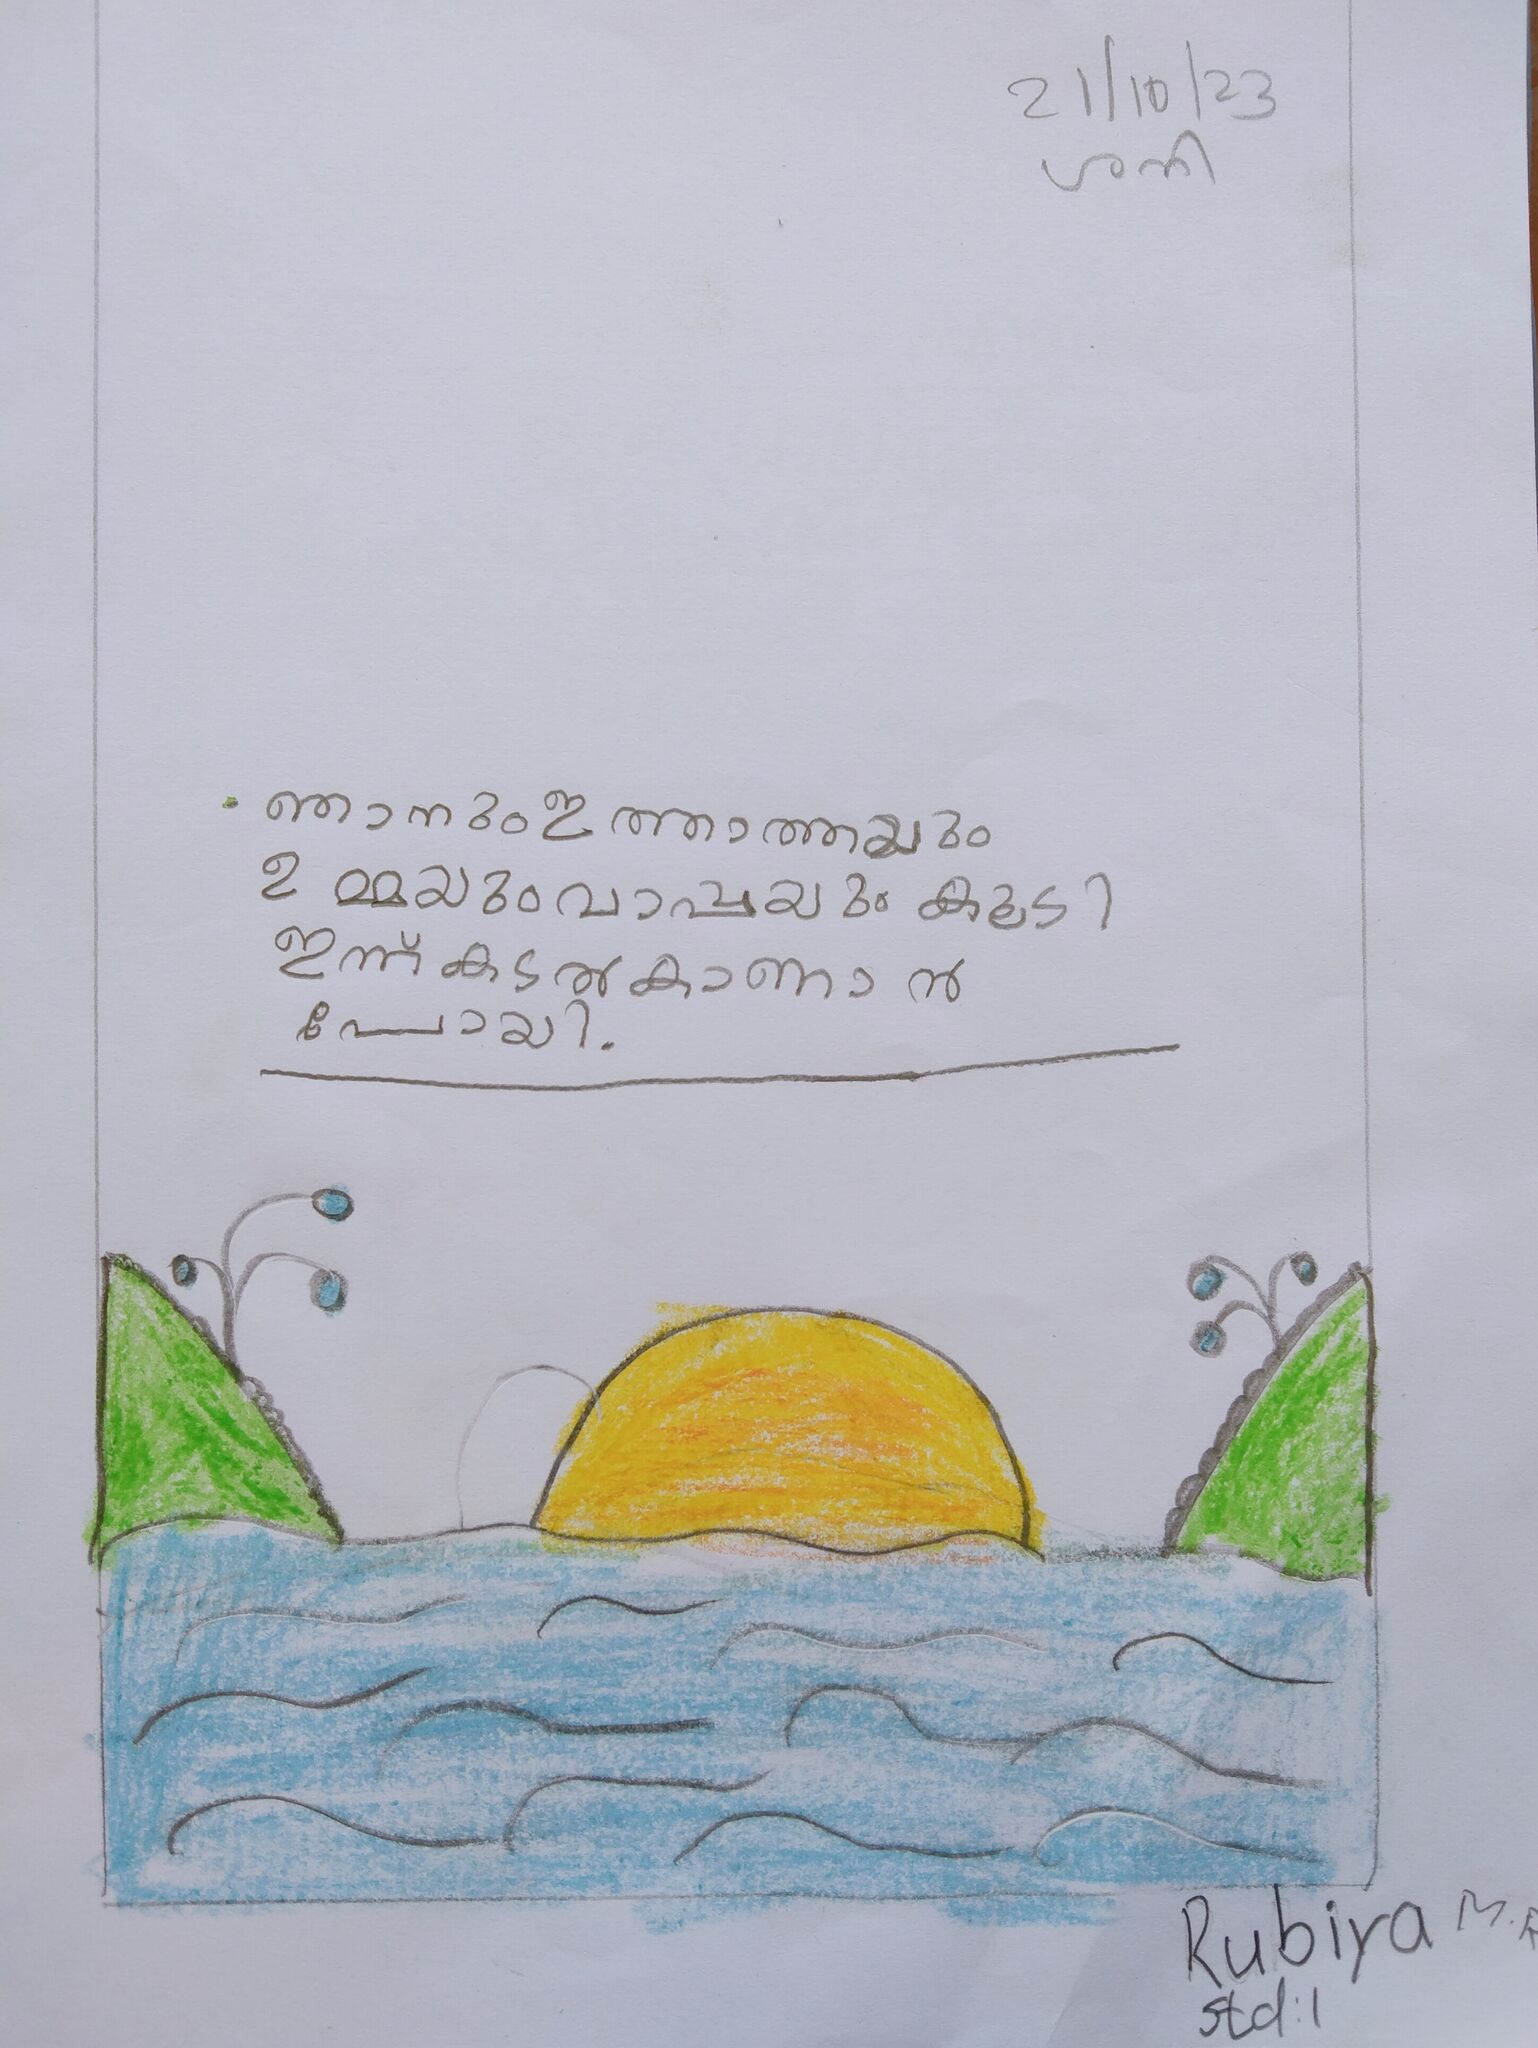 21/10/23
ശനി
ഞാനും ഇത്താത്തയും
ഉമ്മയും വാപ്പയും കൂടി
ഇന്ന് കടൽ കാണാൻ
പോയി.
Rubiya M.
std:1